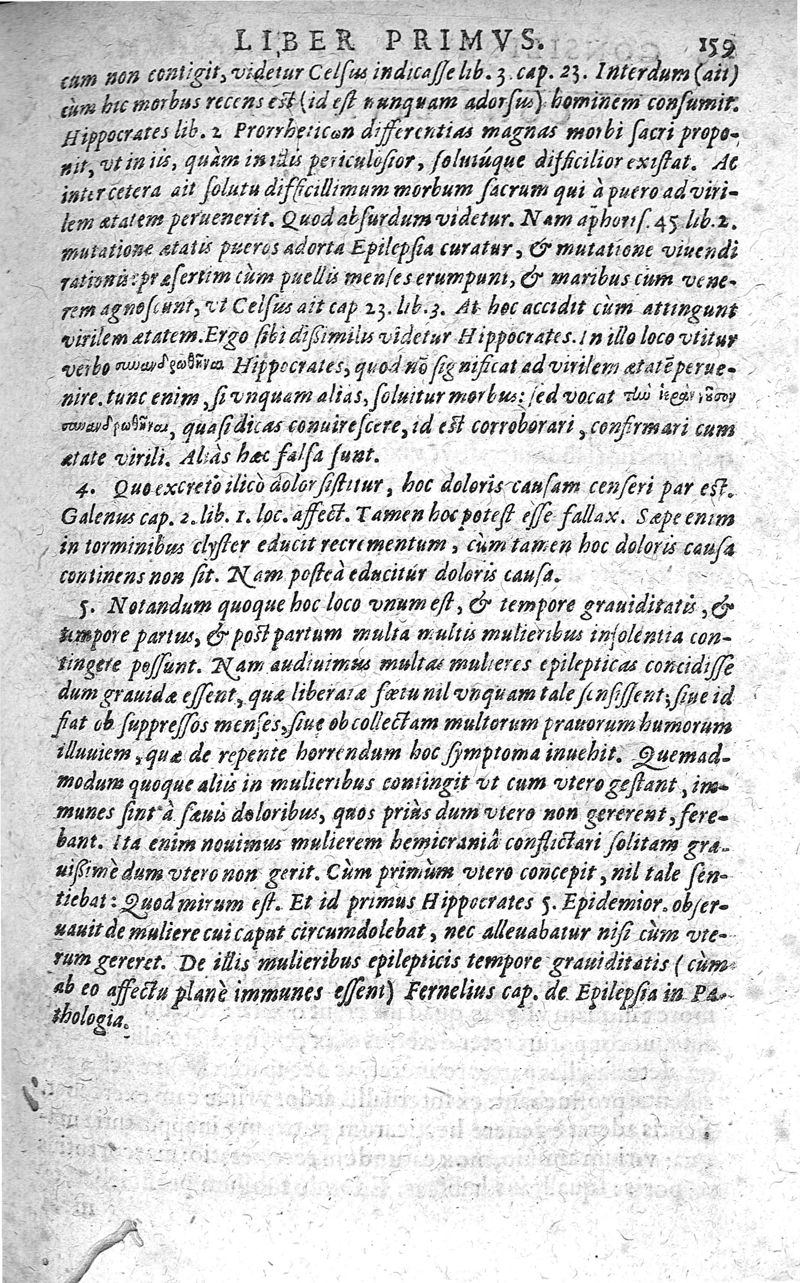 LIBER PRIMVS. 159
cum non contigit, videtur Celsus indicasse lib. 3. cap. 23. Interdum (ait)
cùm hic morbus recens est (id est nunquam adorsus) hominem consumit.
Hippocrates lib. 2 Prorrheticωn differentias magnas morbi sacri propo-
nit, vt in iis, quàm in illis periculosior, solutúque difficilior existat. Ac
inter cetera ait solutu difficillimum morbum sacrum qui à puero ad viri-
lem ætatem peruenerit. Quod absurdum videtur. Nam aphoris. 45 lib. 2.
mutatione ætatis pueros adorta Epilepsia curatur, & mutatione viuendi
rationis: præsertim cùm puellis menses erumpunt, & maribus cum vene-
rem agnoscunt, vt Celsus ait cap 23. lib. 3. At hoc accidit cùm attingunt
virilem ætatem. Ergo sibi dissimilis videtur Hippocrates. In illo loco vtitur
verbo συνανδρωθῆναι Hippocrates, quod nõ significat ad virilem ætatẽ perue-
nire. tunc enim, si vnquam alias, soluitur morbus: sed vocat τὴν ἱερὴν νοῦσον
συνανδρωθῆναι, quasi dicas conuirescere, id est corroborari, confirmari cum
ætate virili. Aliàs hæc falsa sunt.
4. Quo excreto ilicò dolor sistitur, hoc doloris causam censeri par est.
Galenus cap. 2. lib. 1. loc. affect. Tamen hoc potest esse fallax. Sæpe enim
in torminibus clyster educit recrementum, cùm tamen hoc doloris causa
continens non sit. Nam posteà educitur doloris causa.
5. Notandum quoque hoc loco vnum est, & tempore grauiditatis, &
tempore partus, & post partum multa multis mulieribus insolentia con-
tingere possunt. Nam audiuimus multas mulieres epilepticas concidisse
dum grauidæ essent, quæ liberatæ fœtu nil vnquam tale sensissent; siue id
fiat ob suppressos menses, siue ob collectam multorum prauorum humorum
illuuiem, quæ de repente horrendum hoc symptoma inuehit. Quemad-
modum quoque aliis in mulieribus contingit vt cum vtero gestant, im-
munes sint à sæuis doloribus, quos priùs dum vtero non gererent, fere-
bant. Ita enim nouimus mulierem hemicraniâ conflictari solitam gra-
uissimè dum vtero non gerit. Cùm primùm vtero concepit, nil tale sen-
tiebat: Quod mirum est. Et id primus Hippocrates 5. Epidemior. obser-
uauit de muliere cui caput circumdolebat, nec alleuabatur nisi cùm vte-
rum gereret. De illis mulieribus epilepticis tempore grauiditatis (cùm
ab eo affectu planè immunes essent) Fernelius cap. de Epilepsia in Pa-
thologia.